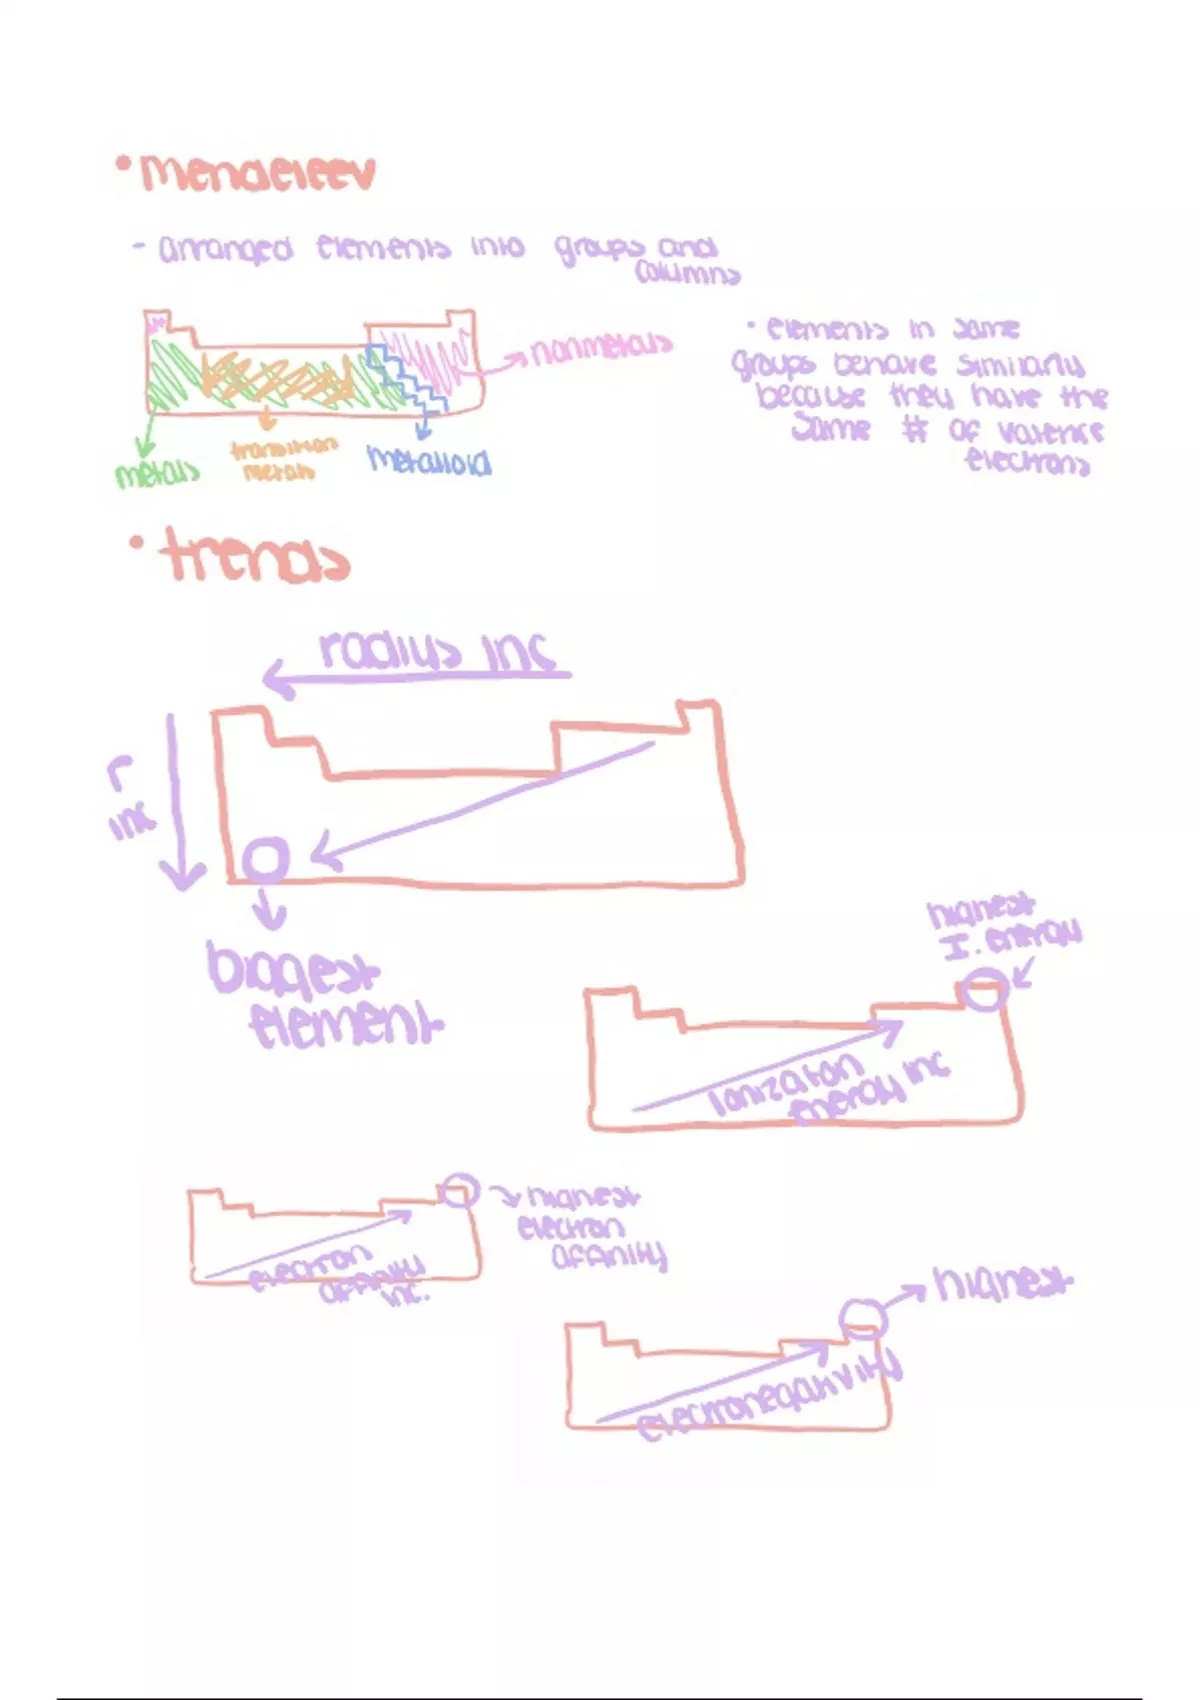 • Mendeleev
- arranged elements into groups and
columns
nonmetals
metals
transition
metals
metalloid
• elements in same
groups behave similarly
because they have the
same # of valence
electrons
• trends
radius inc
r
inc
biggest
element
highest
I. energy
Ionization
energy inc
highest
electron
affinity
electron
affinity
inc.
highest
electronegativity